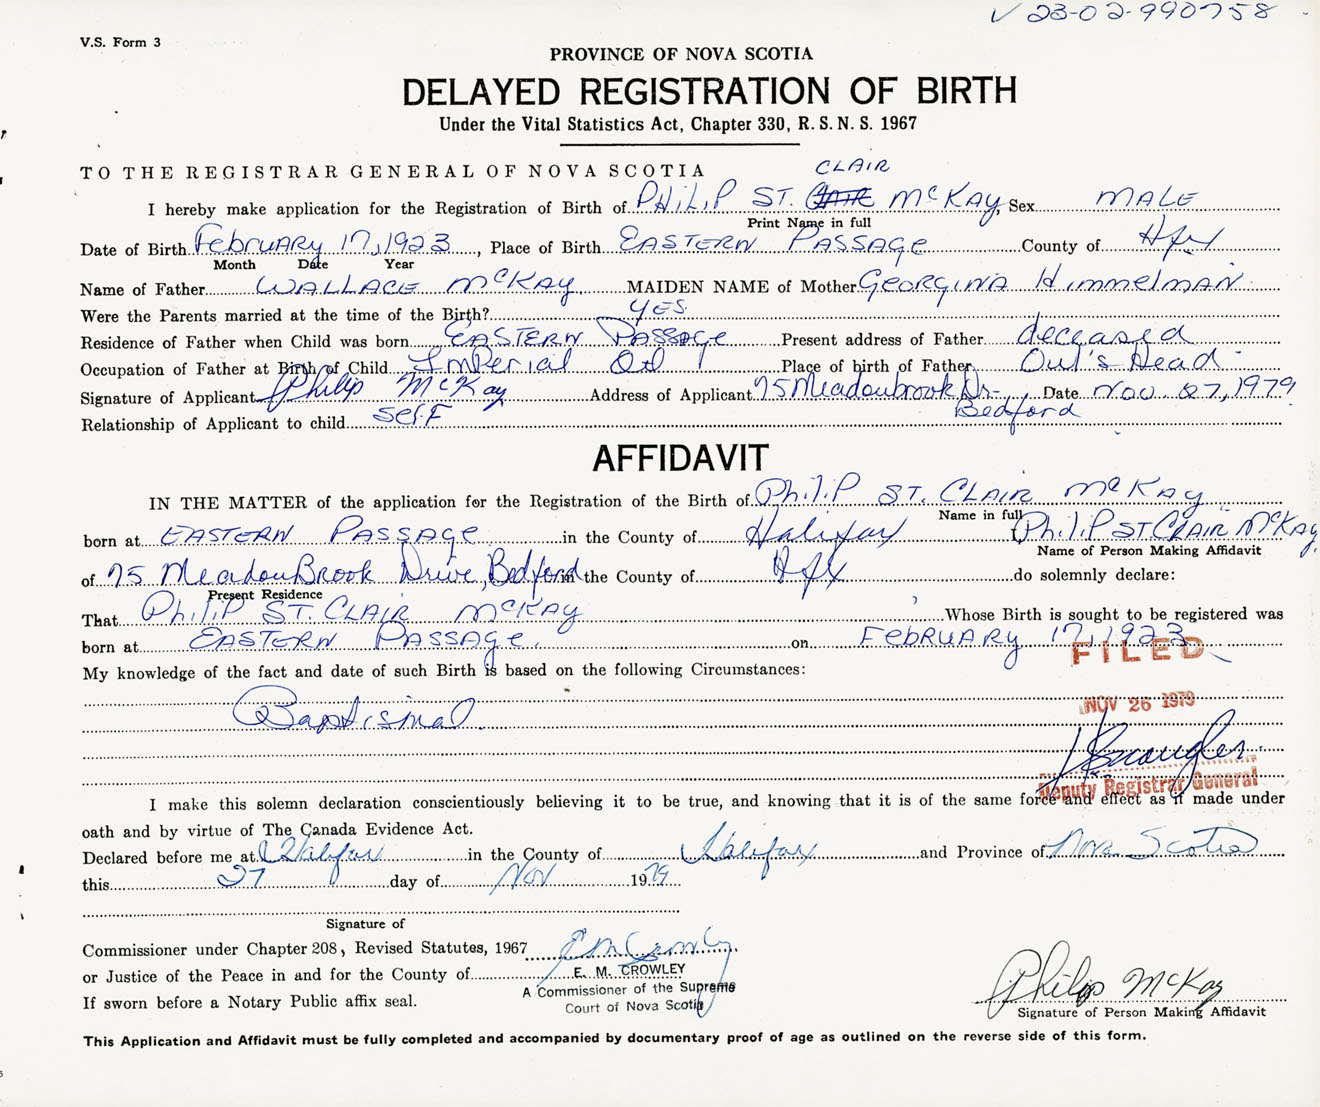 ✓ 23-02-990758
V.S. Form 3
PROVINCE OF NOVA SCOTIA
DELAYED REGISTRATION OF BIRTH
Under the Vital Statistics Act, Chapter 330, R. S. N. S. 1967
TO THE REGISTRAR GENERAL OF NOVA SCOTIA
CLAIR
I hereby make application for the Registration of Birth of PHILIP ST. McKAY, Sex MALE
Print Name in full
Date of Birth February 17, 1923, Place of Birth EASTERN PASSAGE County of Hfx
Month Date Year
Name of Father WALLACE McKAY MAIDEN NAME of Mother GEORGINA HimmelMAN
Were the Parents married at the time of the Birth? YES
Residence of Father when Child was born EASTERN PASSAGE Present address of Father deceased
Occupation of Father at Birth of Child Imperial Oil Place of birth of Father Owl's Head
Signature of Applicant Philip McKay Address of Applicant 75 Meadowbrook Dr. Date Nov. 27, 1979
Bedford
Relationship of Applicant to child SELF
AFFIDAVIT
IN THE MATTER of the application for the Registration of the Birth of PhiliP ST. CLAIR McKAY
Name in full
born at EASTERN PASSAGE in the County of Halifax PhiliP ST CLAIR McKAY
Name of Person Making Affidavit
of 75 MeadowBrook Drive, Bedford in the County of Hfx do solemnly declare:
Present Residence
That PhiliP ST. CLAIR McKAY Whose Birth is sought to be registered was
born at EASTERN PASSAGE. on FebRUARY 17, 1923
FILED
My knowledge of the fact and date of such Birth is based on the following Circumstances:
Baptismal
NOV 26 1979
Deputy Registrar General
I make this solemn declaration conscientiously believing it to be true, and knowing that it is of the same force and effect as if made under
oath and by virtue of The Canada Evidence Act.
Declared before me at Halifax in the County of Halifax and Province of Nova Scotia
this 27 day of Nov 1979
Signature of
Commissioner under Chapter 208, Revised Statutes, 1967 E M Crowley
or Justice of the Peace in and for the County of E. M. CROWLEY
A Commissioner of the Supreme
If sworn before a Notary Public affix seal. Court of Nova Scotia
Philip McKay
Signature of Person Making Affidavit
This Application and Affidavit must be fully completed and accompanied by documentary proof of age as outlined on the reverse side of this form.